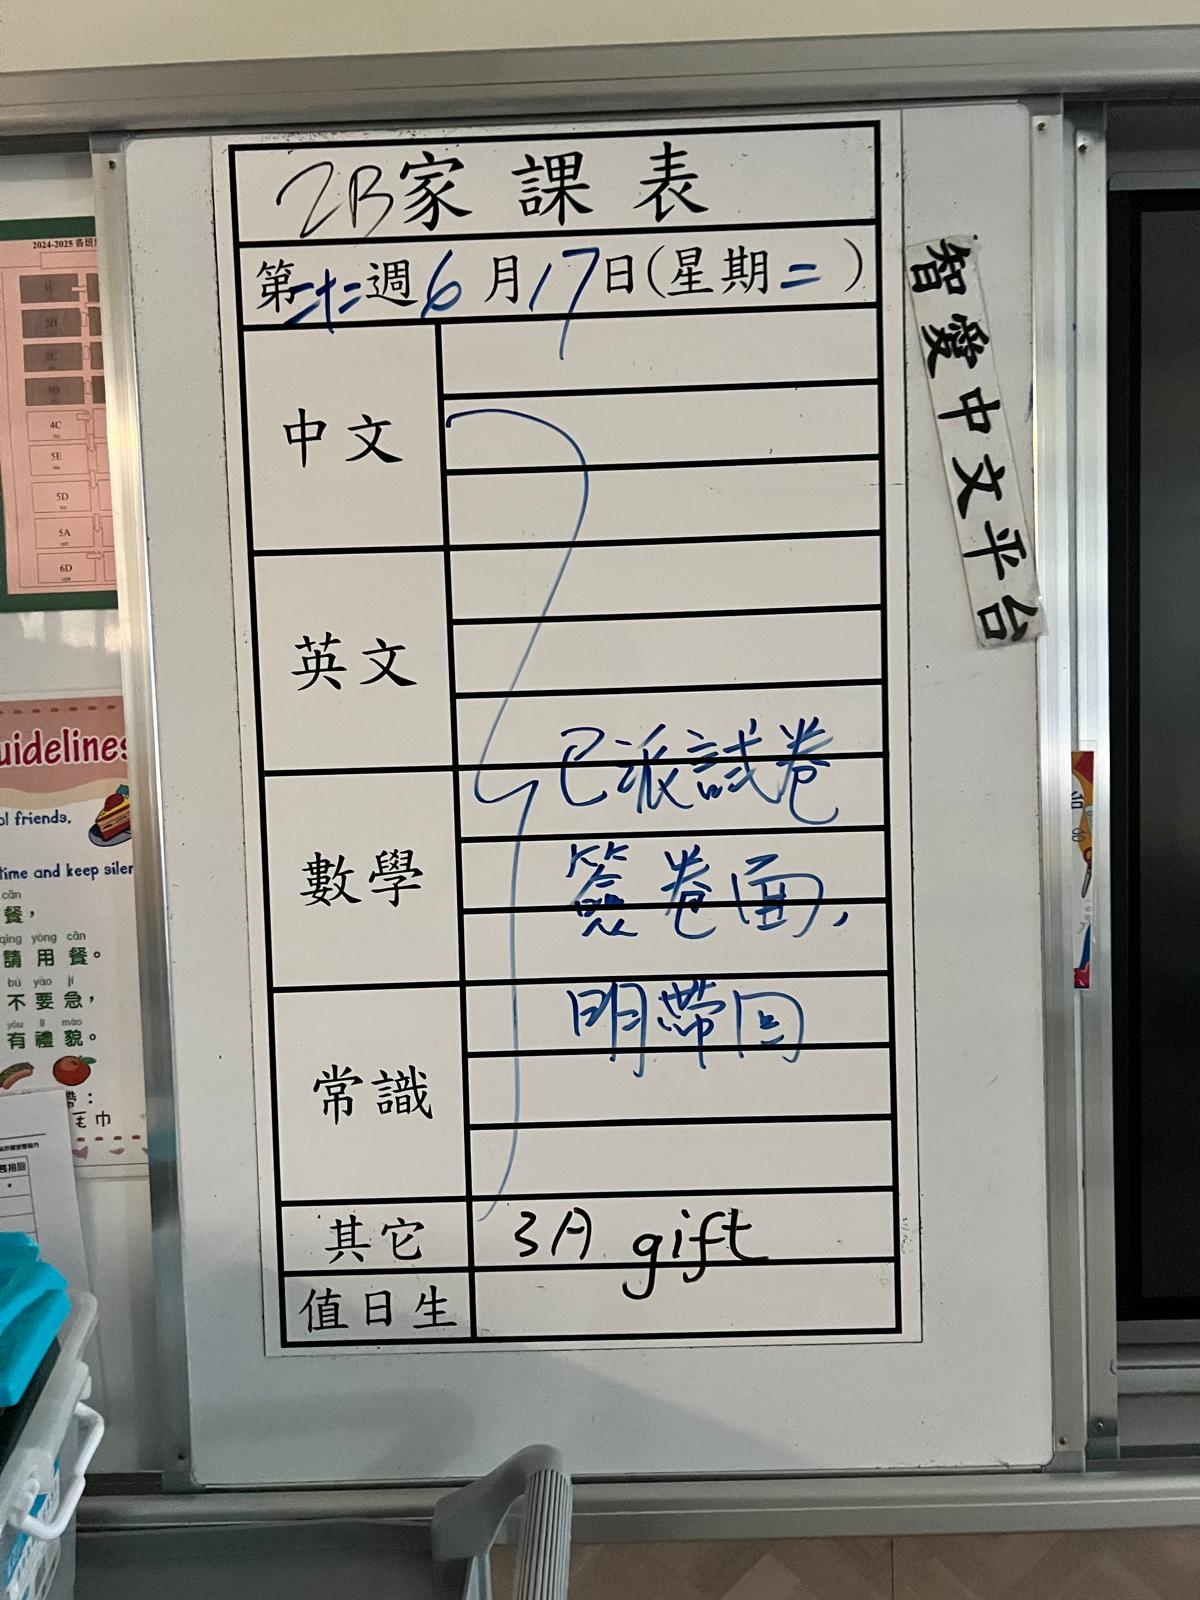 2B家課表
第二十二週6月17日(星期二)
中文
英文
數學
常識
已派試卷
簽卷面,
明帶回
其它
3A gift
值日生
智愛中文平台
2024-2025 各班
2D
2C
3D
4C
5E
5D
5A
6D
uidelines
ol friends,
time and keep silen
cān
餐，
qǐng yòng cān
請用餐。
bú yào jí
不要急，
yǒu lǐ mào
有禮貌。
帶：
毛巾